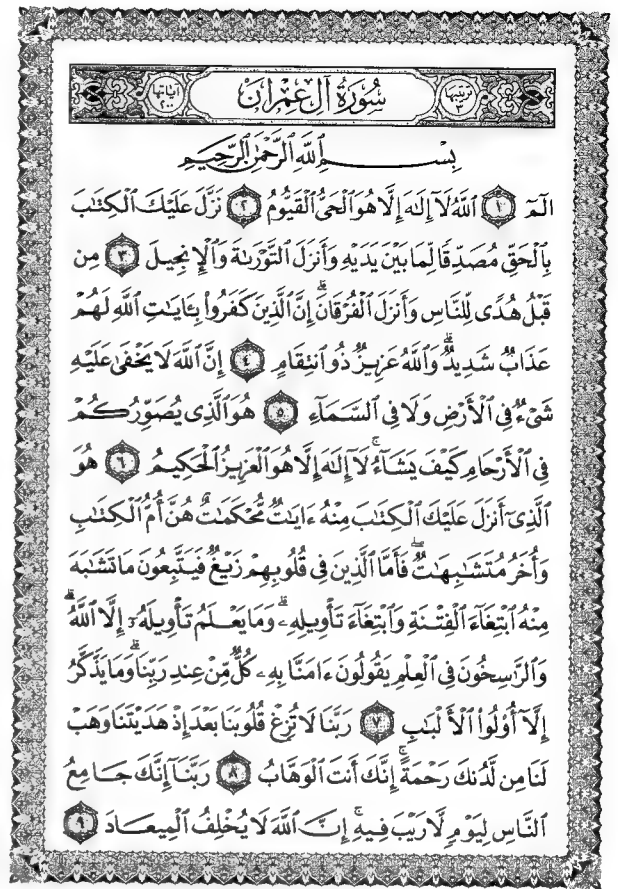 ترتيبها ٣ سُورَةُ آلِ عِمْرَانَ آياتها ٢٠٠
بِسْمِ اللَّهِ الرَّحْمَٰنِ الرَّحِيمِ
الٓمٓ ١ اللَّهُ لَآ إِلَٰهَ إِلَّا هُوَ الْحَىُّ الْقَيُّومُ ٢ نَزَّلَ عَلَيْكَ الْكِتَٰبَ
بِالْحَقِّ مُصَدِّقًا لِّمَا بَيْنَ يَدَيْهِ وَأَنزَلَ التَّوْرَىٰةَ وَالْإِنجِيلَ ٣ مِن
قَبْلُ هُدًى لِّلنَّاسِ وَأَنزَلَ الْفُرْقَانَ ۗ إِنَّ الَّذِينَ كَفَرُوا۟ بِـَٔايَٰتِ اللَّهِ لَهُمْ
عَذَابٌ شَدِيدٌ ۗ وَاللَّهُ عَزِيزٌ ذُو انتِقَامٍ ٤ إِنَّ اللَّهَ لَا يَخْفَىٰ عَلَيْهِ
شَىْءٌ فِى الْأَرْضِ وَلَا فِى السَّمَآءِ ٥ هُوَ الَّذِى يُصَوِّرُكُمْ
فِى الْأَرْحَامِ كَيْفَ يَشَآءُ ۚ لَآ إِلَٰهَ إِلَّا هُوَ الْعَزِيزُ الْحَكِيمُ ٦ هُوَ
الَّذِىٓ أَنزَلَ عَلَيْكَ الْكِتَٰبَ مِنْهُ ءَايَٰتٌ مُّحْكَمَٰتٌ هُنَّ أُمُّ الْكِتَٰبِ
وَأُخَرُ مُتَشَٰبِهَٰتٌ ۖ فَأَمَّا الَّذِينَ فِى قُلُوبِهِمْ زَيْغٌ فَيَتَّبِعُونَ مَا تَشَٰبَهَ
مِنْهُ ابْتِغَآءَ الْفِتْنَةِ وَابْتِغَآءَ تَأْوِيلِهِۦ ۗ وَمَا يَعْلَمُ تَأْوِيلَهُۥٓ إِلَّا اللَّهُ ۗ
وَالرَّٰسِخُونَ فِى الْعِلْمِ يَقُولُونَ ءَامَنَّا بِهِۦ كُلٌّ مِّنْ عِندِ رَبِّنَا ۗ وَمَا يَذَّكَّرُ
إِلَّآ أُو۟لُوا۟ الْأَلْبَٰبِ ٧ رَبَّنَا لَا تُزِغْ قُلُوبَنَا بَعْدَ إِذْ هَدَيْتَنَا وَهَبْ
لَنَا مِن لَّدُنكَ رَحْمَةً ۚ إِنَّكَ أَنتَ الْوَهَّابُ ٨ رَبَّنَآ إِنَّكَ جَامِعُ
النَّاسِ لِيَوْمٍ لَّا رَيْبَ فِيهِ ۚ إِنَّ اللَّهَ لَا يُخْلِفُ الْمِيعَادَ ٩